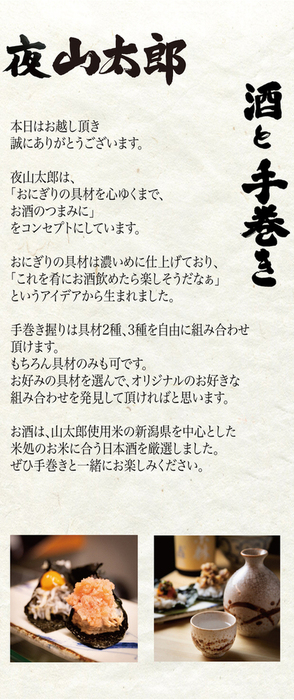 夜山太郎
酒と手巻き
本日はお越し頂き
誠にありがとうございます。
夜山太郎は、
「おにぎりの具材を心ゆくまで、
お酒のつまみに」
をコンセプトにしています。
おにぎりの具材は濃いめに仕上げており、
「これを肴にお酒飲めたら楽しそうだなぁ」
というアイデアから生まれました。
手巻き握りは具材2種、3種を自由に組み合わせ
頂けます。
もちろん具材のみも可です。
お好みの具材を選んで、オリジナルのお好きな
組み合わせを発見して頂ければと思います。
お酒は、山太郎使用米の新潟県を中心とした
米処のお米に合う日本酒を厳選しました。
ぜひ手巻きと一緒にお楽しみください。